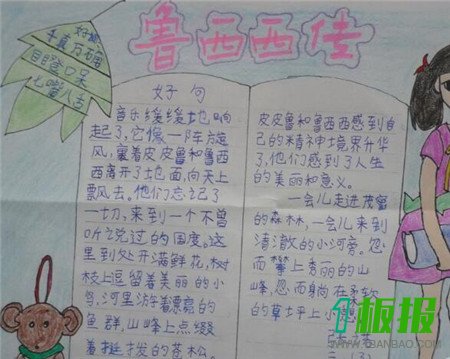 鲁西西传
好词
千真万确
目瞪口呆
七嘴八舌
好句
音乐缓缓地响
起了,它像一阵旋
风,裹着皮皮鲁和鲁西
西离开了地面,向天上
飘去。他们忘记了
一切,来到一个不曾
听说过的国度。这
里到处开满鲜花,树
枝上逗留着美丽的小
鸟,河里游着漂亮的
鱼群,山峰上点缀
着挺拔的苍松。
皮皮鲁和鲁西西感到自
己的精神境界升华
了,他们感到了人生
的美丽和意义。
一会儿走进茂密
的森林,一会儿来到
清澈的小河旁。忽
而攀上秀丽的山
峰,忽而躺在柔软
的草坪上小憩
1板报